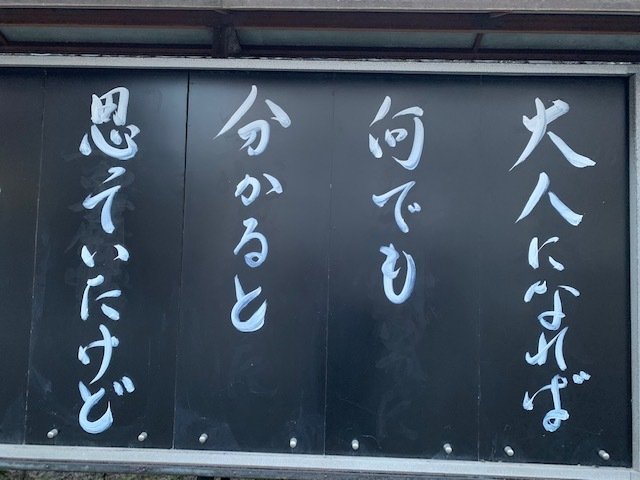 大人になれば
何でも
分かると
思ていたけど